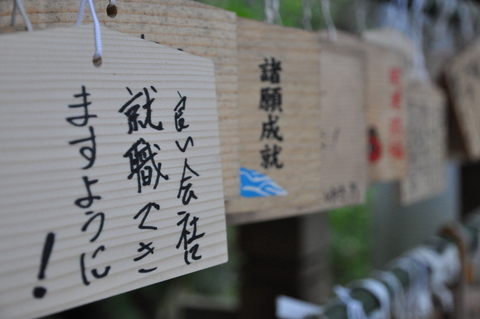 良い会社に
就職でき
ますように
!
諸願成就